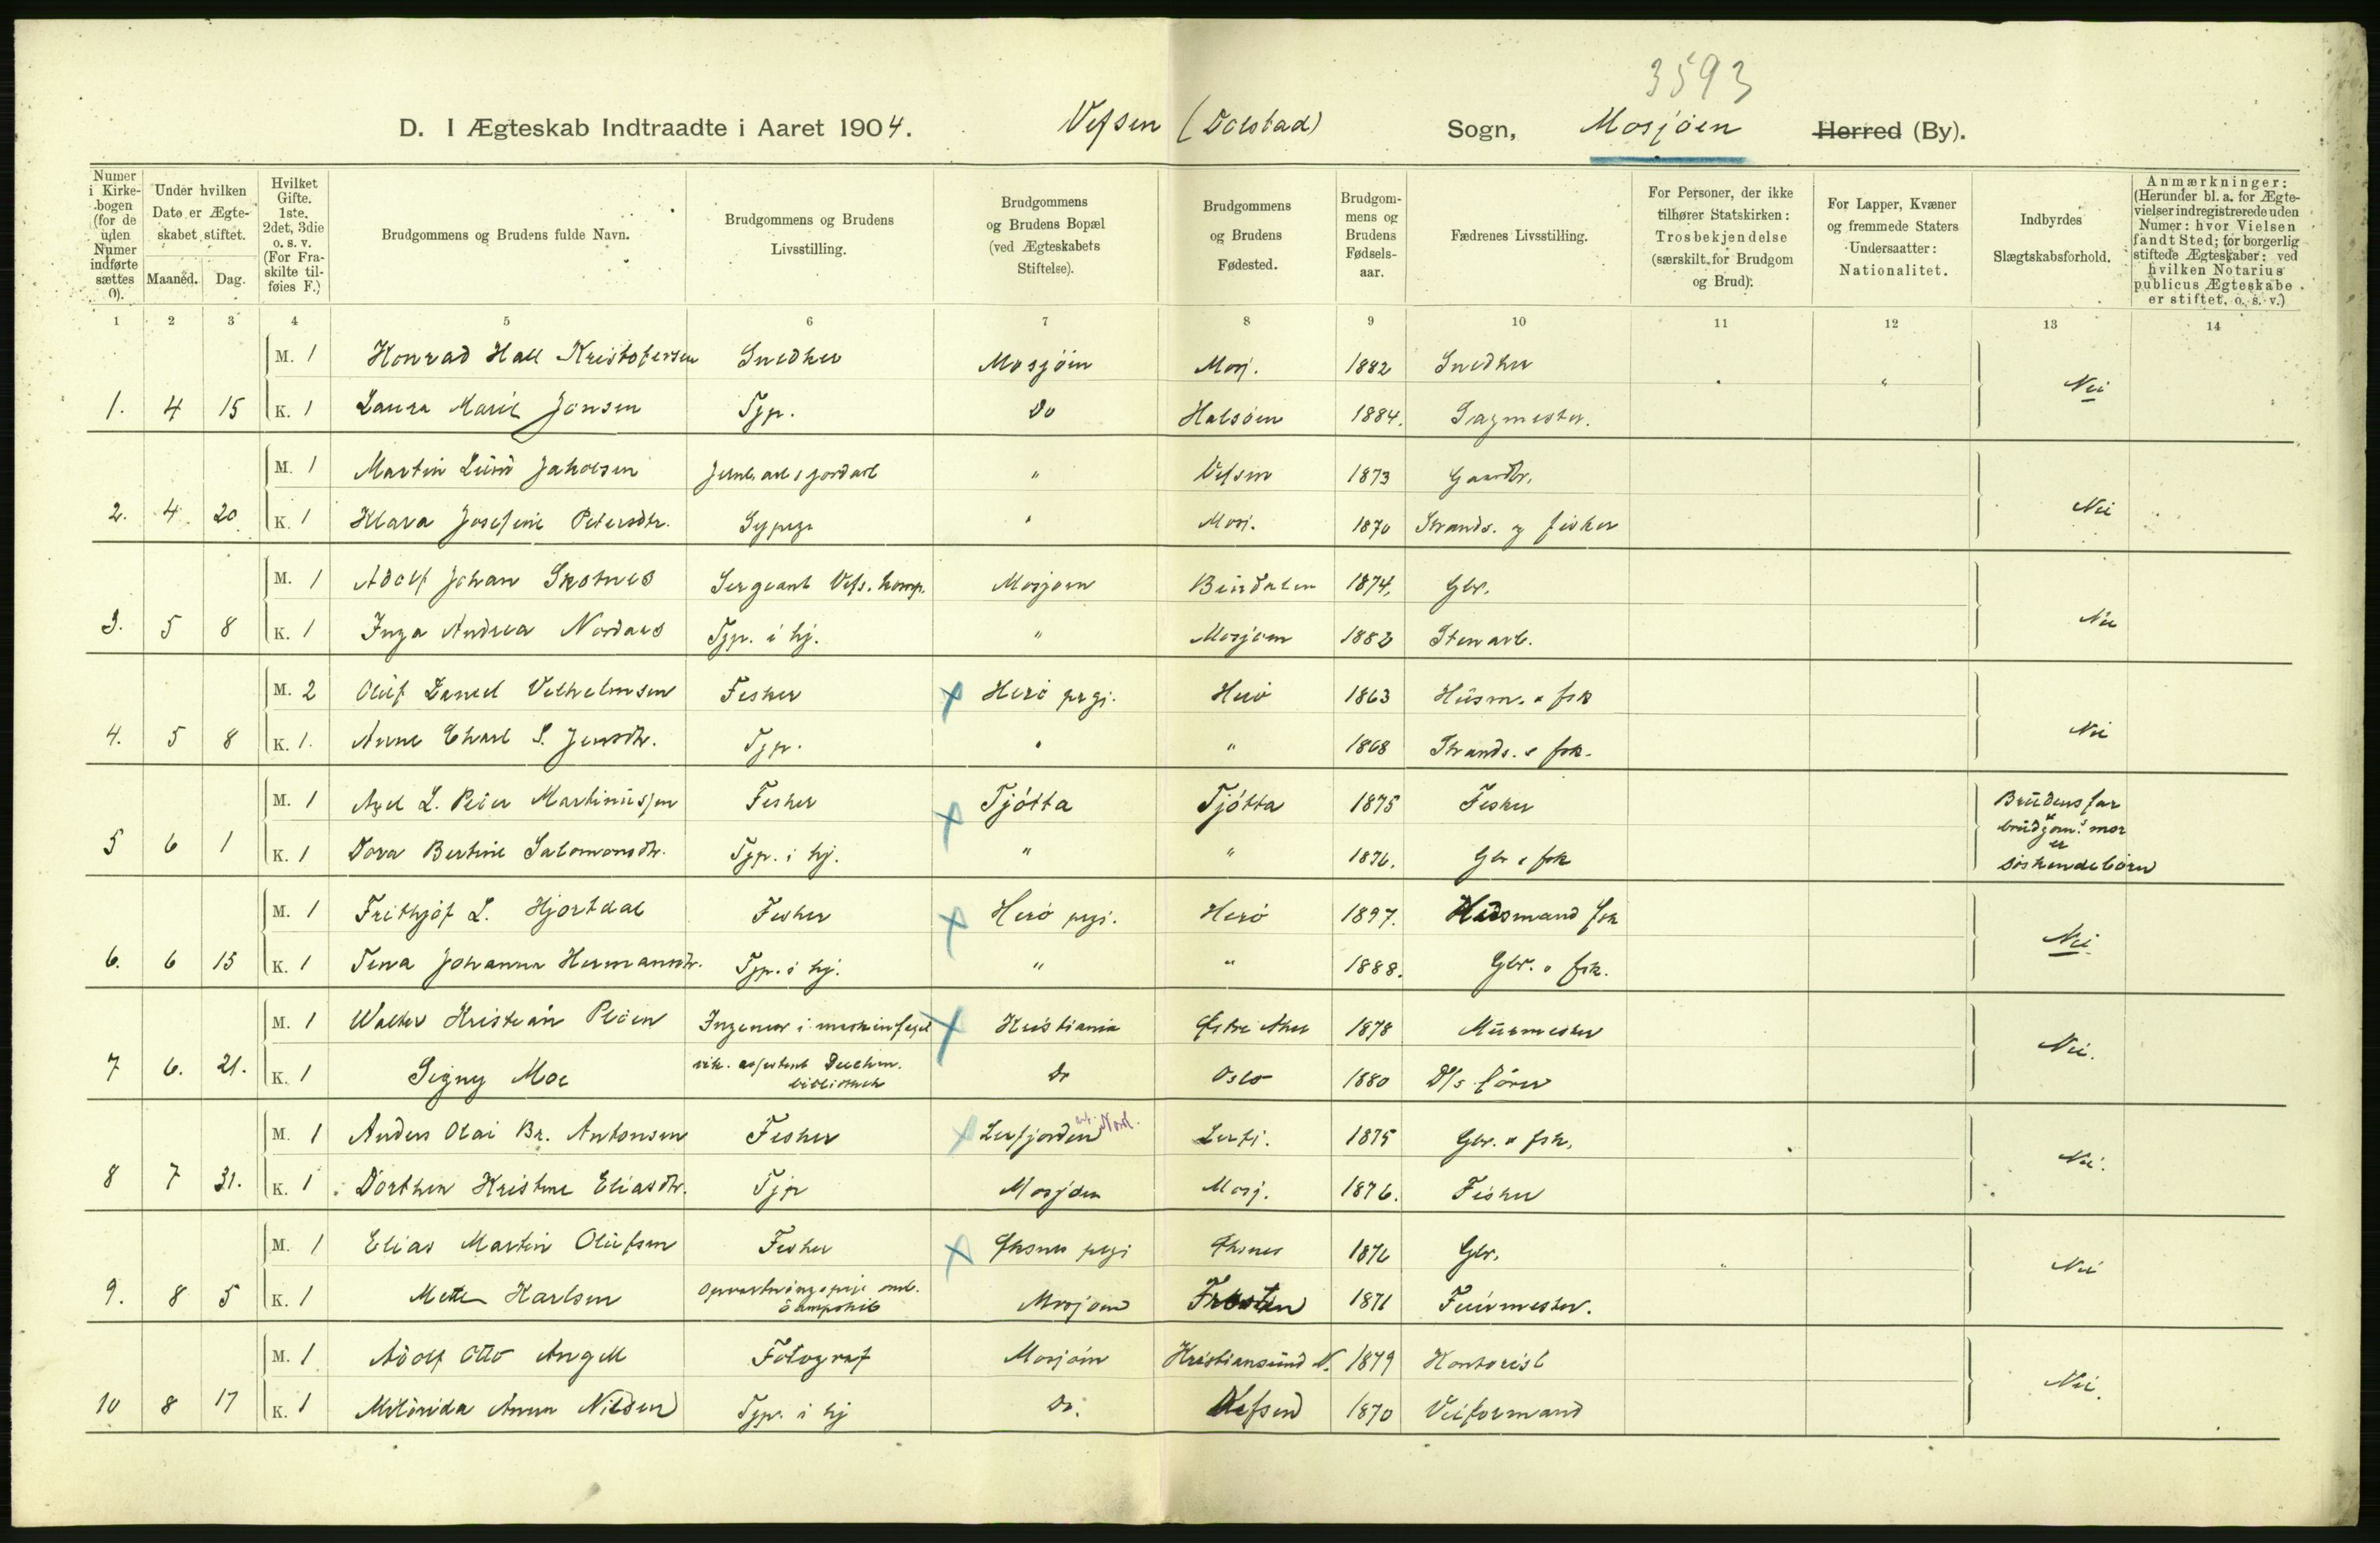 3593
D. I Ægteskab Indtraadte i Aaret 1904. Vefsen (Dolstad) Sogn, Mosjøen Herred (By).
Numer i Kirkebogen (for de uden Numer indførte sættes 0). Under hvilken Dato er Ægteskabet stiftet. Maaned. Dag. Hvilket Gifte. 1ste, 2det, 3die o. s. v. (For Fraskilte tilføies F.) Brudgommens og Brudens fulde Navn. Brudgommens og Brudens Livsstilling. Brudgommens og Brudens Bopæl (ved Ægteskabets Stiftelse). Brudgommens og Brudens Fødested. Brudgommens og Brudens Fødselsaar. Fædrenes Livsstilling. For Personer, der ikke tilhører Statskirken: Trosbekjendelse (særskilt for Brudgom og Brud). For Lapper, Kvæner og fremmede Staters Undersaatter: Nationalitet. Indbyrdes Slægtskabsforhold. Anmærkninger: (Herunder bl. a. for Ægtevielser indregistrerede uden Numer: hvor Vielsen fandt Sted; for borgerlig stiftede Ægteskaber: ved hvilken Notarius publicus Ægteskabet er stiftet, o. s. v.)
1 2 3 4 5 6 7 8 9 10 11 12 13 14
M. 1 Konrad Hall Kristofersen Snedker Mosjöen Mosj. 1882 Snedker " " Nei
1. 4 15 K. 1 Laura Marie Jonsen Tjp. Do Halsöen 1884. Sagmester.
M. 1 Martin Lund Jakobsen Jernb. arb & jordarb " Vefsen 1873 Gaardbr. Nei
2. 4 20 K. 1 Klara Josefine Petersdtr. Sypige " Mosj. 1870 Strands. og fisker
M. 1 Adolf Johan Skotnes Sergeant Vefs. komp. Mosjøen Bindalen 1874. Gbr. Nei
3. 5 8 K. 1 Inga Andrea Nordaas Tjp. i hj. " Mosjøen 1882 Stenarb.
M. 2 Oluf Daniel Vilhelmsen Fisker Herö prgj. Herö 1863 Husm. & fsk Nei
4. 5 8 K. 1. Anne Charl S. Jensdtr. Tjp. " " 1868 Strands. & fsk.
M. 1 Axel L. Peder Martinussen Fisker Tjötta Tjötta 1875 Fisker Brudens far & brudgom.s mor er söskendebörn
5 6 1 K. 1 Dora Bertine Salomonsdtr. Tjp. i hj. " " 1876. Gbr & fsk
M. 1 Frithjof L. Hjortdal Fisker Herö prgj. Herö 1897. Husmand fsk Nei.
6. 6 15 K. 1 Tena Johanna Hermansdtr. Tjp. i hj. " " 1888. Gbr. & fsk.
M. 1 Walter Kristian Plöen Ingeniør i maskinfaget Kristiania Østre Aker 1878 Murmester Nei.
7 6. 21. K. 1 Signy Moe vik. assistent Deichm. bibliothek Do Oslo 1880 D/s förer
M. 1 Anders Olai Br. Antonsen Fisker Leirfjorden Nord. Leirfj. 1875 Gbr. & fsk. Nei.
8 7 31. K. 1 Dorthea Kristine Eliasdtr. Tjp Mosjöen Mosj. 1876. Fisker
M. 1 Elias Martin Olufsen Fisker Øksnes prgj Øksnes 1876 Gbr. " Nei
9. 8 5 K. 1 Mette Karlsen Opvartningspige omb. dampskib Mosjøen Frosten 1871 Furermester.
M. 1 Adolf Otto Angell Fotograf Mosjöen Kristiansund N. 1879 Kontorist Nei.
10 8 17 K. 1 Anna Nilsen Tjp. i hj Do. Vefsen 1870 Veiformand